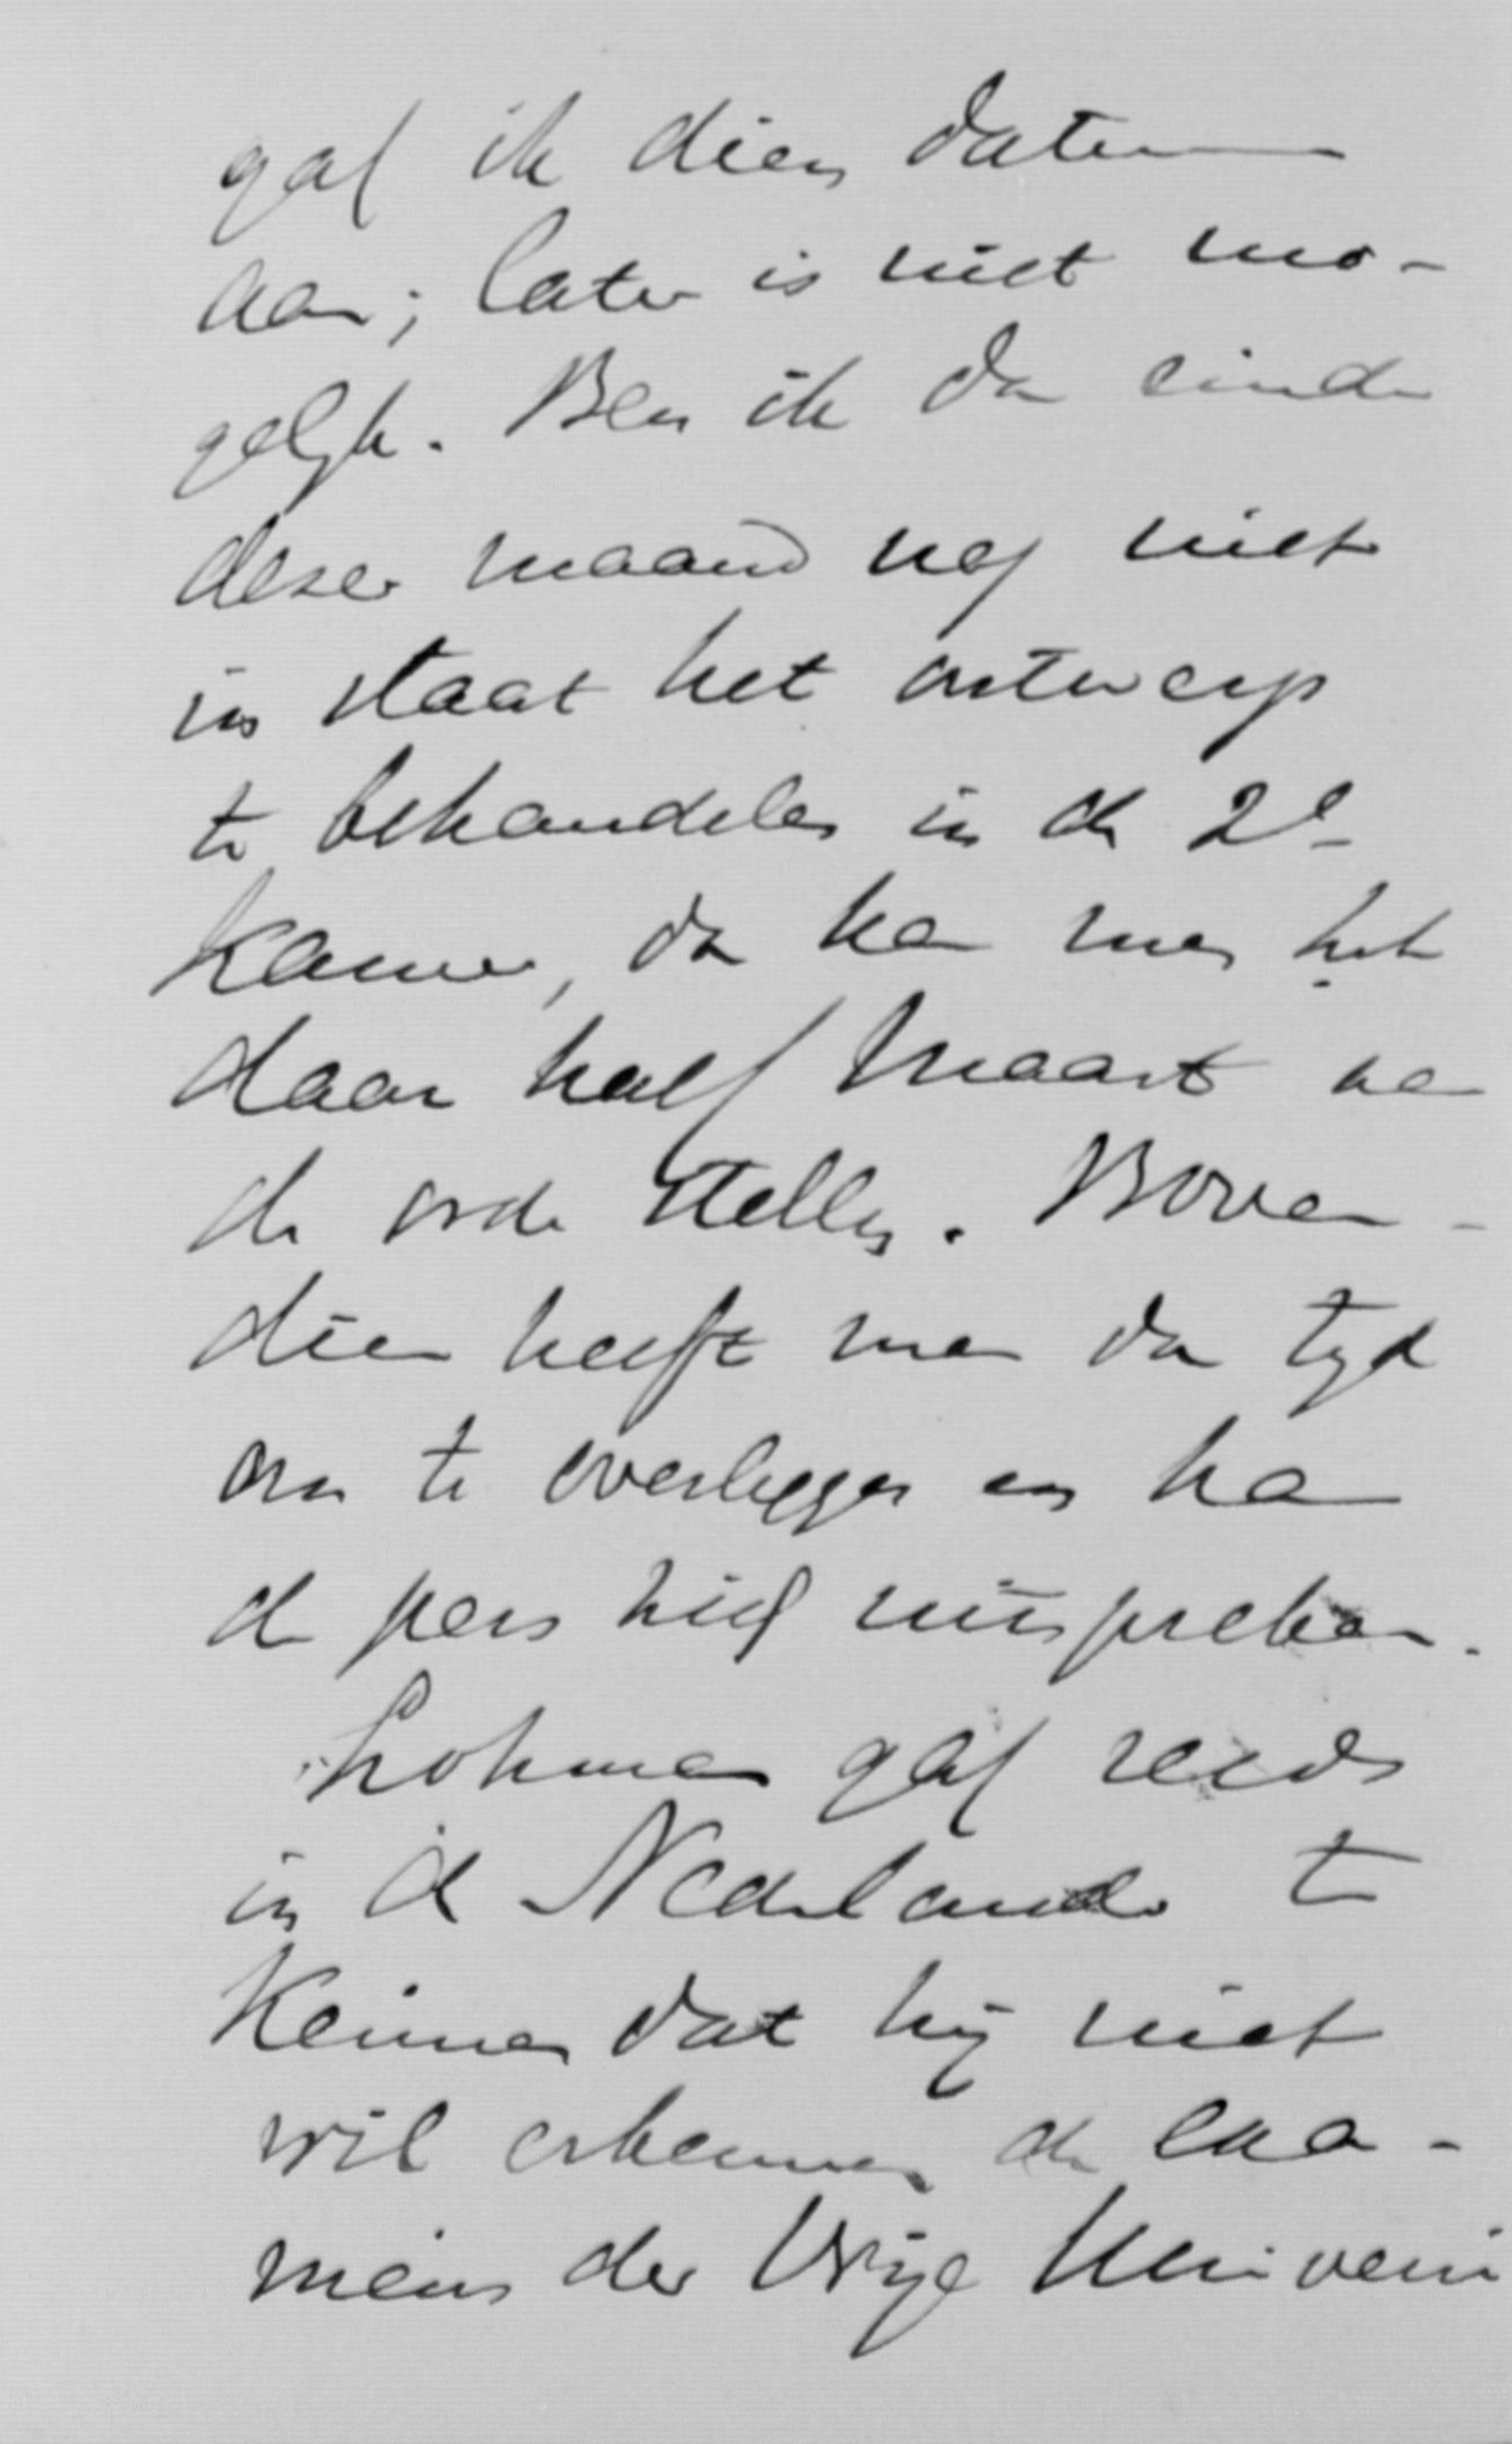 gaf ik dien datum
aan; later is niet mo-
gelijk. Ben ik dan einde
dezer maand nog niet
in staat het ontwerp
te behandelen in de 2e
Kamer, dan kan men het
daar half Maart aan
de orde stellen. Boven-
dien heeft men dan tijd
om te overleggen en kan
de pers zich uitspreken.
Lohman gaf reeds
in de Nederlander te
kennen dat hij niet
wil erkennen de exa-
mens der Vrije Universi